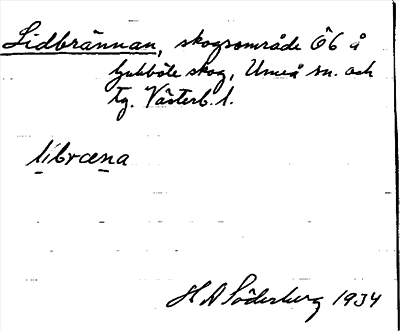 Lidbrännan, skogsområde ÖG å
ljubböle skog, Umeå sn. och
tg. Västerb. l.
li̱bræṉa
H A Söderberg 1934